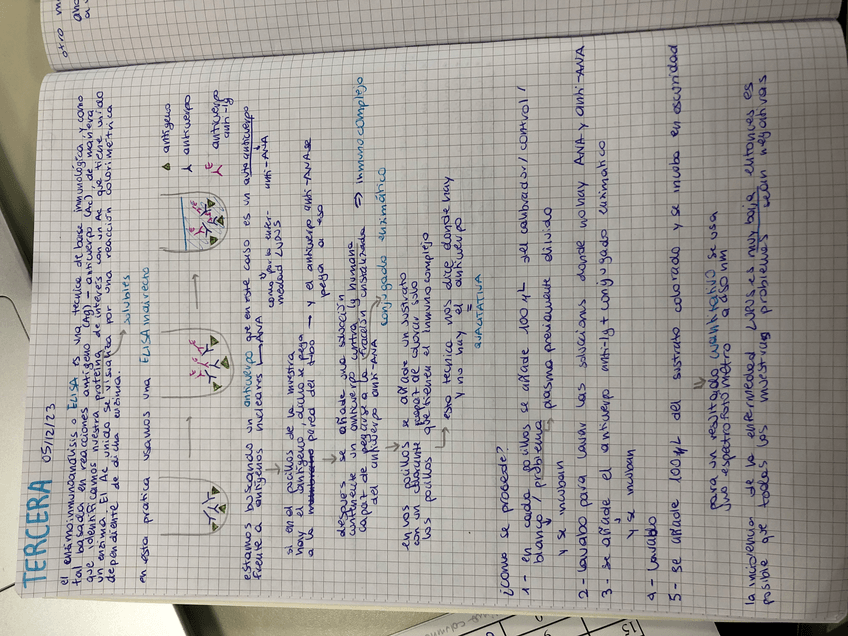 TERCERA 05/12/23
el enzimoinmunoanálisis o ELISA es una tecnica de base immunológica y como
tal basada en reacciones antígeno (Ag) - anticuerpo (Ac), de manera
que identificamos nuestra proteína de interés con un Ac que tiene unido
un enzima. El Ac unido se visualiza por una reacción colorimétrica
dependiente de dicha enzima.
solubles
en esta pratica usamos una ELISA indirecta
antígeno
anticuerpo
anticuerpo
anti-Ig
estamos buscando un anticuerpo que en este caso es un autoanticuerpo
frente a antígenos nucleares → ANA
anti-ANA
como para la enfer-
medad LUPUS
si en el pocillos de la muestra
hay el antígeno, dicho se pega
a la membrana pared del tubo → y el anticuerpo anti-ANA se
pega a eso
despues se añade una solución
contenente un anticuerpo contra Ig humana
capaz de pegarse a la fracción cristalizada
del anticuerpo anti-ANA
⇒ inmunocomplejo
conjugado enzimático
en los pocillos se añade un sustrato
con un colorante capaz de colorar solo
los pocillos que tienen el inmunocomplejo
esta tecnica nos dice donde hay
y no hay el anticuerpo
=
QUALITATIVA
¿como se procede?
1 - en cada pocillos se añade 100 µL del calibrador/ control/
blanco/ problema
plasma previamente diluido
y se incuban
2 - lavabo para lavar las soluciones donde no hay ANA y anti-ANA
3 - se añade el anticuerpo anti-Ig + conjugado enzimatico
y se incuban
4 - lavablo
5 - se añade 100 µL del sustrato colorado y se incuba en oscuridad
para un resultado cuantitativo se usa
uno espectrofotometro a 450 nm
la incidencia de la enfermedad LUPUS es muy baja, entonces es
posible que todas las muestras problemas sean negativas
otro